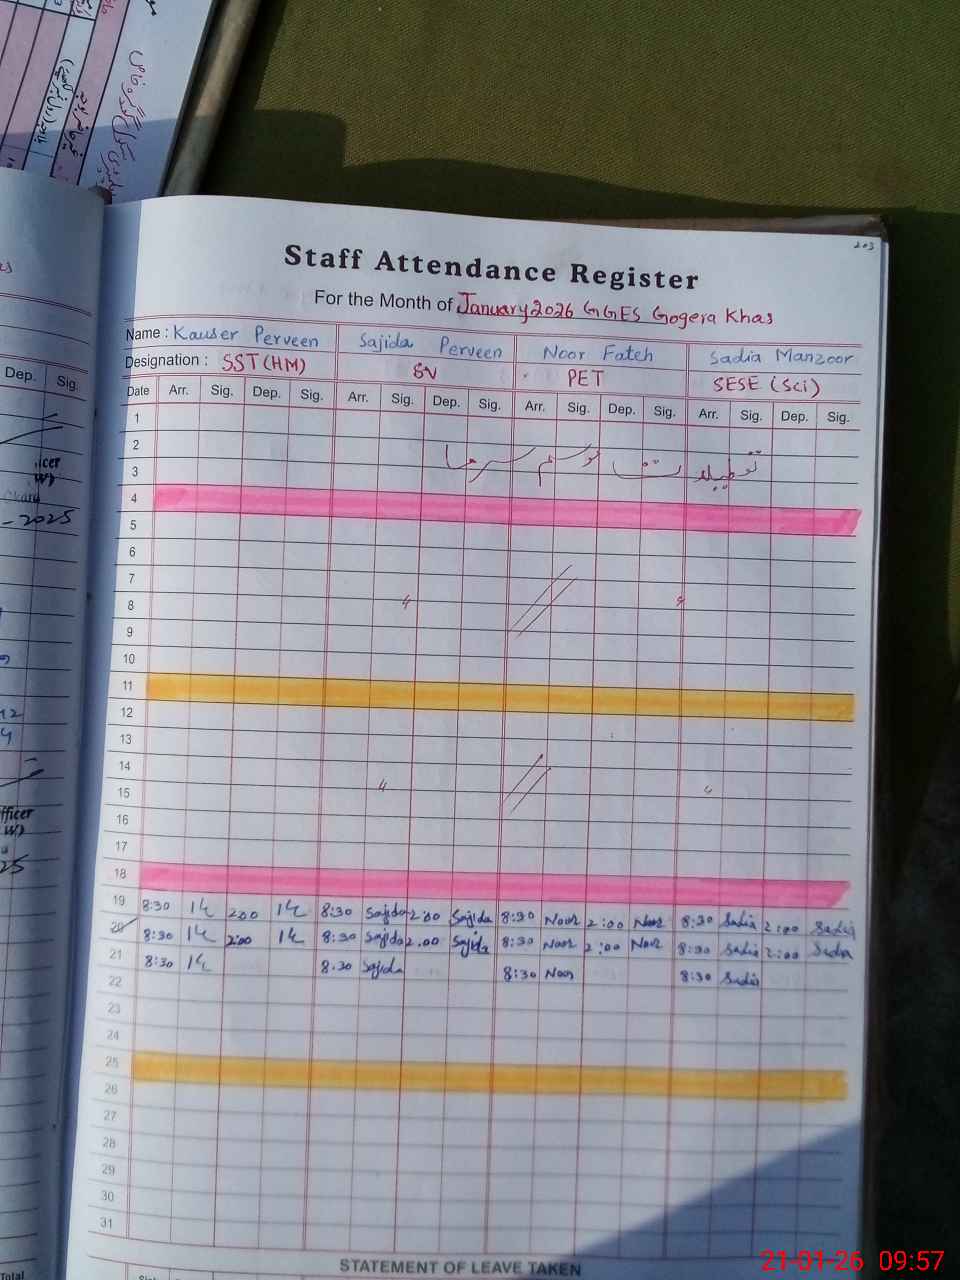 203
Staff Attendance Register
For the Month of January 2026 GGES Gogera Khas
Name : Kauser Perveen Sajida Perveen Noor Fateh Sadia Manzoor
Designation : SST (HM) SV PET SESE (Sci)
Date Arr. Sig. Dep. Sig. Arr. Sig. Dep. Sig. Arr. Sig. Dep. Sig. Arr. Sig. Dep. Sig.
1
2
تعطیلات موسم سرما
3
4
5
6
7
8
9
10
11
12
13
14
15
16
17
18
19 8:30 2:00 8:30 Sajida 2:00 Sajida 8:30 Noor 2:00 Noor 8:30 Sadia 2:00 Sadia
20 8:30 2:00 8:30 Sajida 2:00 Sajida 8:30 Noor 2:00 Noor 8:30 Sadia 2:00 Sadia
21 8:30 8:30 Sajida 8:30 Noor 8:30 Sadia
22
23
24
25
26
27
28
29
30
31
STATEMENT OF LEAVE TAKEN
Dep. Sig.
-2025
Total
21-01-26 09:57